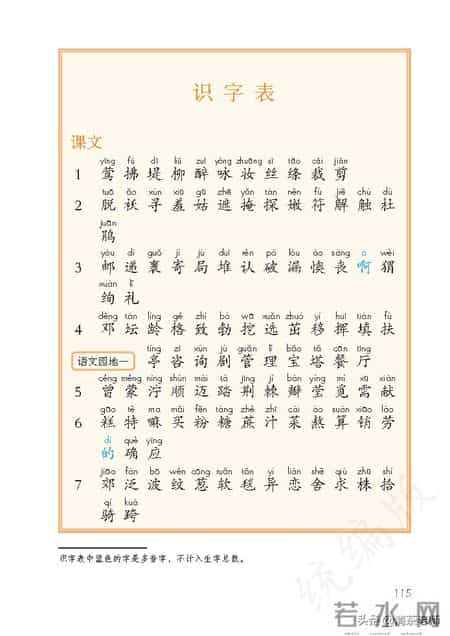 识字表
课文
yīng fú dī liǔ zuì yǒng zhuāng sī tāo cái jiǎn
1 莺 拂 堤 柳 醉 咏 妆 丝 绦 裁 剪
tuō ǎo xún xiū gū zhē yǎn tàn nèn fú jiě chù dù
2 脱 袄 寻 羞 姑 遮 掩 探 嫩 符 解 触 杜
juān
鹃
yóu dì guǒ jì jú duī rèn pò lòu ào sàng a wèi
3 邮 递 裹 寄 局 堆 认 破 漏 懊 丧 啊 猬
xuàn lǐ
绚 礼
dèng tán líng gé zhì bó wā xuǎn zhuó yí huī tián fú
4 邓 坛 龄 格 致 勃 挖 选 茁 移 挥 填 扶
tíng zī xún jù guǎn lǐ bǎo tǎ cān tīng
语文园地一 亭 咨 询 剧 管 理 宝 塔 餐 厅
céng méng nìng shùn mài tà jīng jí bàn yíng mì xū xiàn
5 曾 蒙 泞 顺 迈 踏 荆 棘 瓣 莹 觅 需 献
gāo tè ma mǎi fěn táng zhè zhī cài áo suàn xiāo láo
6 糕 特 嘛 买 粉 糖 蔗 汁 菜 熬 算 销 劳
dí què yīng
的 确 应
jiāo fàn bō wén cōng ruǎn tǎn yì liàn shě qiú zhū shí
7 郊 泛 波 纹 葱 软 毯 异 恋 舍 求 株 拾
qí kuà
骑 跨
识字表中蓝色的字是多音字，不计入生字总数。
统编版
115
若水网